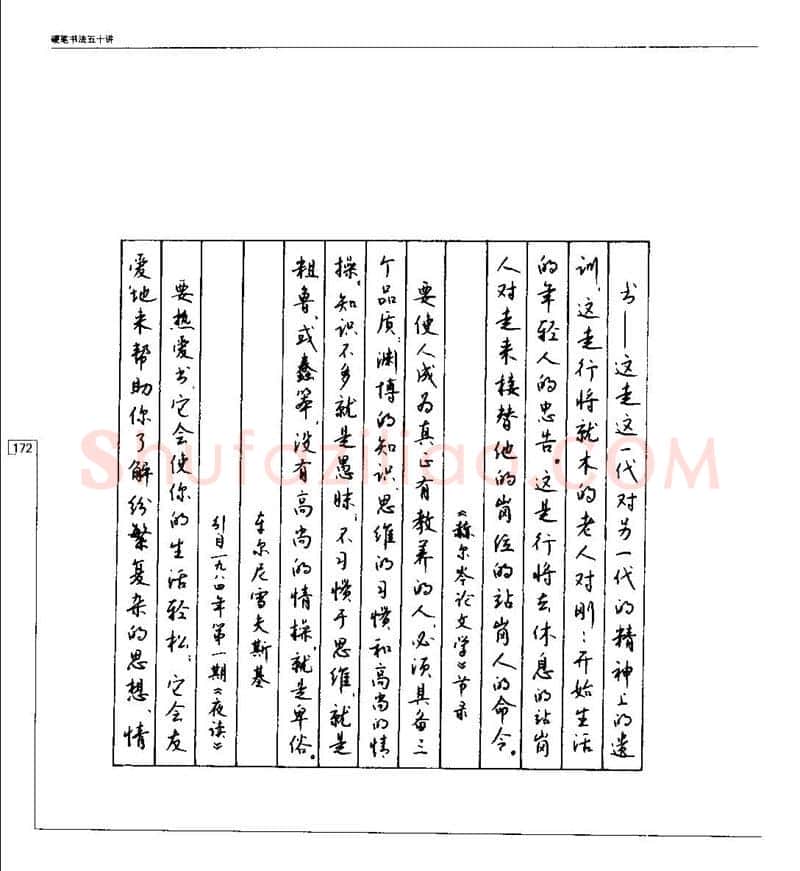 硬笔书法五十讲
书——这是这一代对另一代的精神上的遗
训,这是行将就木的老人对刚刚开始生活
的年轻人的忠告,这是行将去休息的站岗
人对走来接替他的岗位的站岗人的命令。
《赫尔岑论文学》节录
要使人成为真正有教养的人,必须具备三
个品质:渊博的知识、思维的习惯和高尚的情
操。知识不多就是愚昧;不习惯于思维,就是
粗鲁或蠢笨;没有高尚的情操,就是卑俗。
车尔尼雪夫斯基
引自一九八四年第一期《夜读》
要热爱书,它会使你的生活轻松;它会友
爱地来帮助你了解纷繁复杂的思想、情
172
Shufaziliao.COM